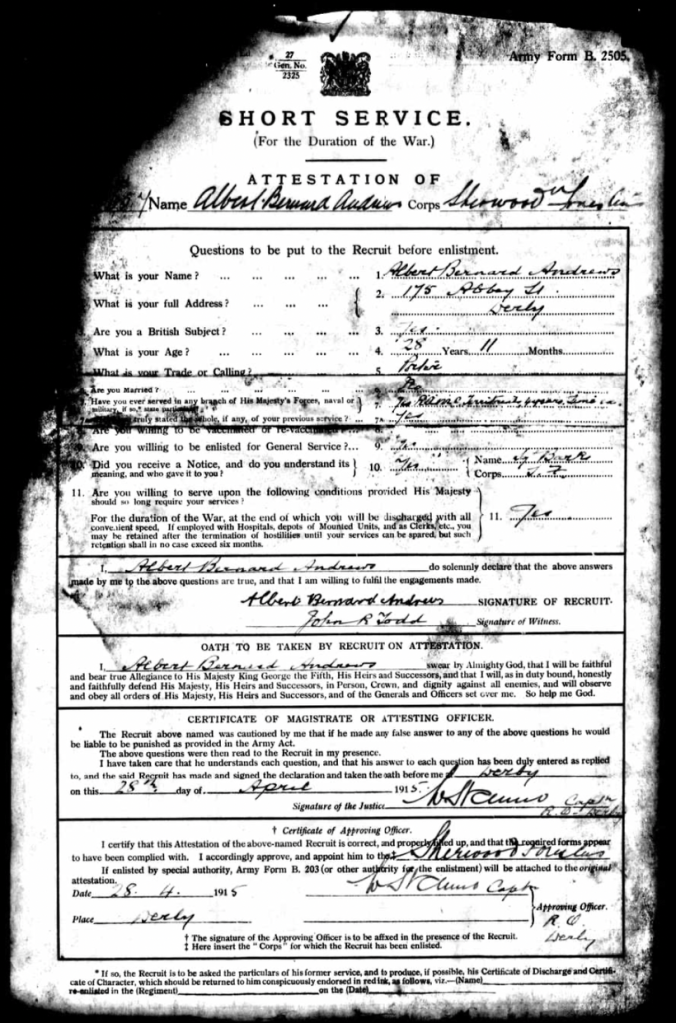 27
Gen. No.
2325
Army Form B. 2505.
SHORT SERVICE.
(For the Duration of the War.)
ATTESTATION OF
Name Albert Bernard Andrews Corps Sherwood Foresters
Questions to be put to the Recruit before enlistment.
What is your Name? ... ... ... 1. Albert Bernard Andrews
What is your full Address? ... ... ... 2. 175 Abbey St
Derby
Are you a British Subject? ... ... ... 3. Yes
What is your Age? ... ... ... 4. 28 Years 11 Months
What is your Trade or Calling? ... ... 5.
Are you Married? ... ... ... ...
Have you ever served in any branch of His Majesty's Forces, naval or
military, if so,* state particulars 7. Yes R.A.M.C.
truly stated the whole, if any, of your previous service? 7a Yes
Are you willing to be vaccinated or re-vaccinated
9. Are you willing to be enlisted for General Service?... 9. Yes
10. Did you receive a Notice, and do you understand its
meaning, and who gave it to you? 10. Yes Name
Corps
11. Are you willing to serve upon the following conditions provided His Majesty
should so long require your services?
For the duration of the War, at the end of which you will be discharged with all
convenient speed. If employed with Hospitals, depots of Mounted Units, and as Clerks, etc., you
may be retained after the termination of hostilities until your services can be spared, but such
retention shall in no case exceed six months. 11. Yes
I, Albert Bernard Andrews do solemnly declare that the above answers
made by me to the above questions are true, and that I am willing to fulfil the engagements made.
Albert Bernard Andrews SIGNATURE OF RECRUIT.
John R Todd Signature of Witness.
OATH TO BE TAKEN BY RECRUIT ON ATTESTATION.
I, Albert Bernard Andrews swear by Almighty God, that I will be faithful
and bear true Allegiance to His Majesty King George the Fifth, His Heirs and Successors, and that I will, as in duty bound, honestly
and faithfully defend His Majesty, His Heirs and Successors, in Person, Crown, and dignity against all enemies, and will observe
and obey all orders of His Majesty, His Heirs and Successors, and of the Generals and Officers set over me. So help me God.
CERTIFICATE OF MAGISTRATE OR ATTESTING OFFICER.
The Recruit above named was cautioned by me that if he made any false answer to any of the above questions he would
be liable to be punished as provided in the Army Act.
The above questions were then read to the Recruit in my presence.
I have taken care that he understands each question, and that his answer to each question has been duly entered as replied
to, and the said Recruit has made and signed the declaration and taken the oath before me at Derby
on this 28th day of April 1915
Signature of the Justice Capt
R.O. Derby
† Certificate of Approving Officer.
I certify that this Attestation of the above-named Recruit is correct, and properly filled up, and that the required forms appear
to have been complied with. I accordingly approve, and appoint him to the‡ Sherwood Foresters
If enlisted by special authority, Army Form B. 203 (or other authority for the enlistment) will be attached to the original
attestation.
Date 28. 4. 1915 Capt
Approving Officer.
Place Derby R.O
Derby
† The signature of the Approving Officer is to be affixed in the presence of the Recruit.
‡ Here insert the "Corps" for which the Recruit has been enlisted.
* If so, the Recruit is to be asked the particulars of his former service, and to produce, if possible, his Certificate of Discharge and Certifi-
cate of Character, which should be returned to him conspicuously endorsed in red ink, as follows, viz.—(Name)
re-enlisted in the (Regiment) on the (Date)